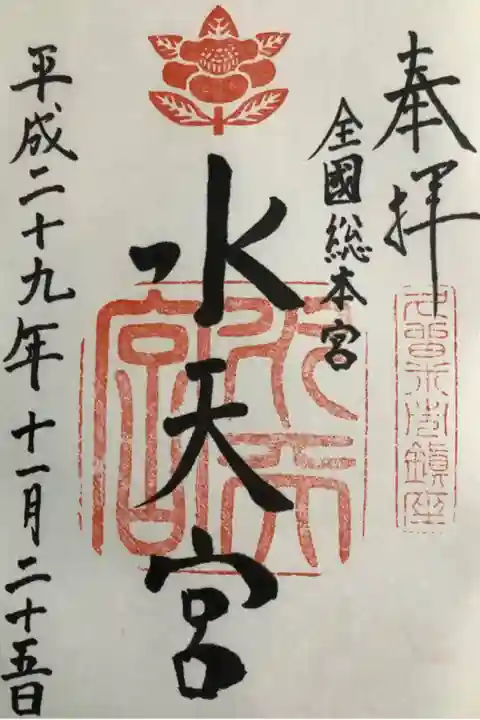 奉拝
久留米市鎮座
全國総本宮
水天宮
水天宮
平成二十九年十一月二十五日